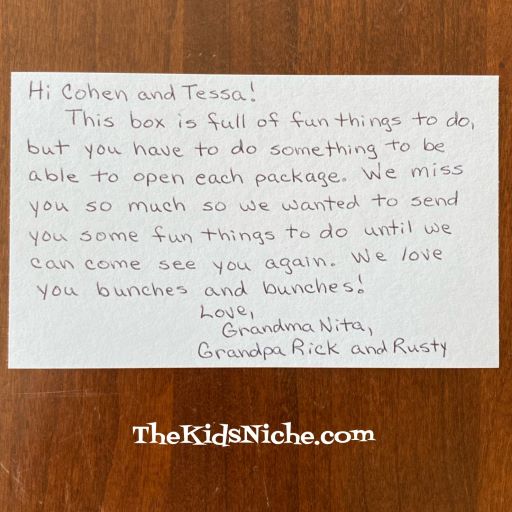 Hi Cohen and Tessa!
This box is full of fun things to do,
but you have to do something to be
able to open each package. We miss
you so much so we wanted to send
you some fun things to do until we
can come see you again. We love
you bunches and bunches!
Love,
Grandma Nita,
Grandpa Rick and Rusty
TheKidsNiche.com